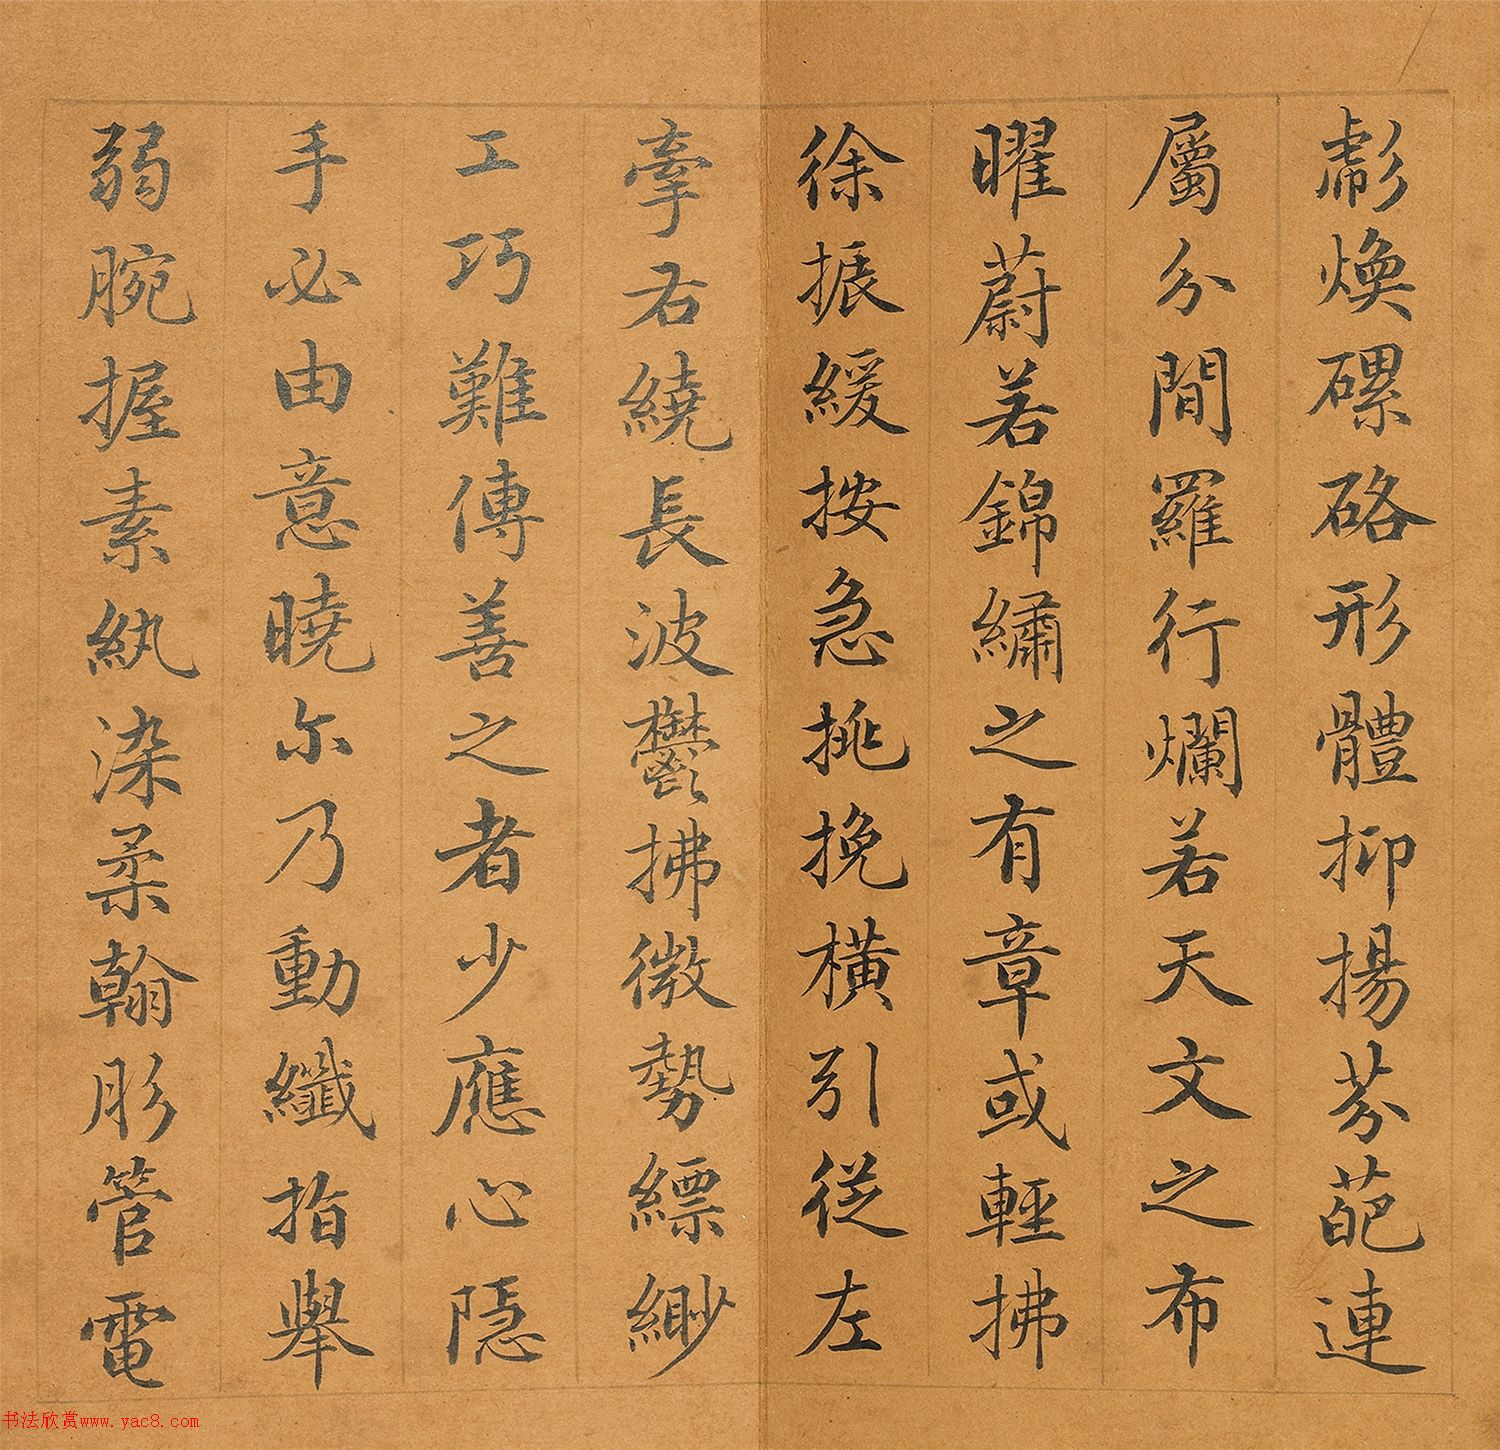 彪煥磥硌形體抑揚芬葩連
屬分間羅行爛若天文之布
曜蔚若錦繡之有章或輕拂
徐振緩按急挑挽橫引從左
牽右繞長波鬱拂微勢縹緲
工巧難傳善之者少應心隱
手必由意曉尓乃動纖指舉
弱腕握素紈染柔翰肜管電
书法欣赏www.yac8.com